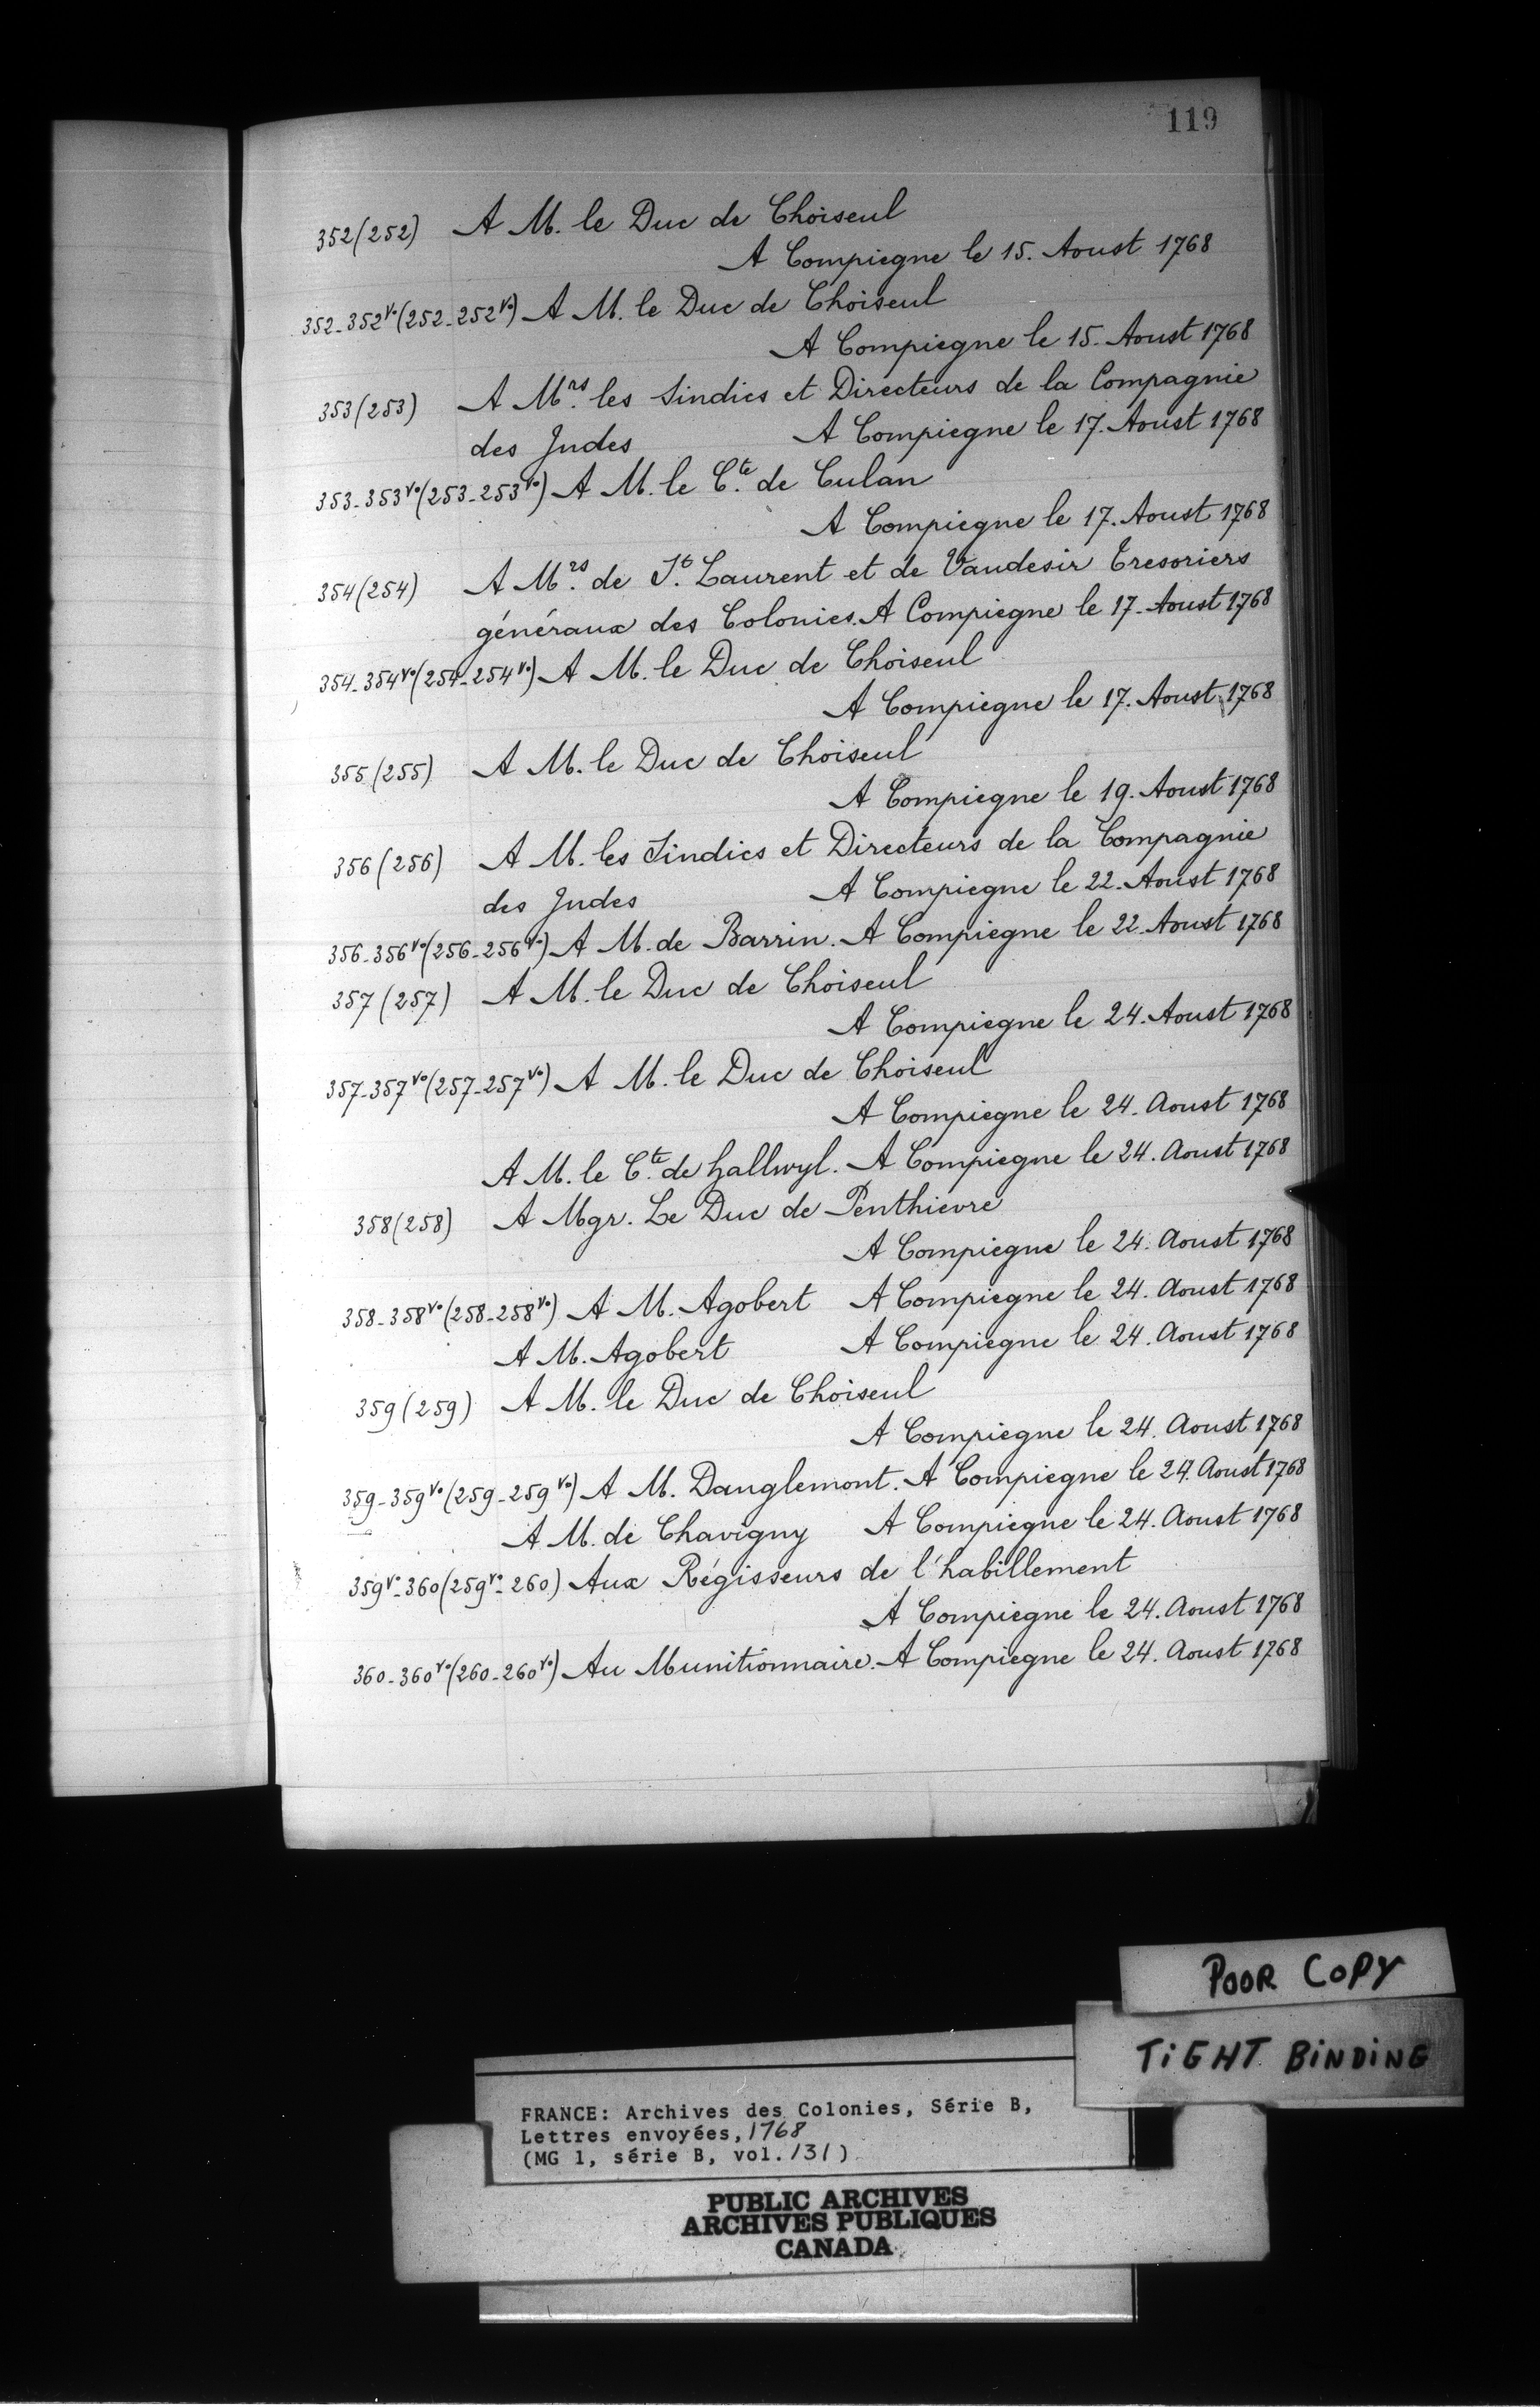 119
352(252) A M. le Duc de Choiseul
A Compiegne le 15. Aoust 1768
352-352vo(252-252vo) A M. le Duc de Choiseul
A Compiegne le 15. Aoust 1768
353(253) A Mrs. les Sindics et Directeurs de la Compagnie
des Indes A Compiegne le 17. Aoust 1768
353-353vo(253-253vo) A M. le Cte. de Culan
A Compiegne le 17. Aoust 1768
354(254) A Mrs. de St. Laurent et de Vaudesir Tresoriers
généraux des Colonies. A Compiegne le 17. Aoust 1768
354-354vo(254-254vo) A M. le Duc de Choiseul
A Compiegne le 17. Aoust 1768
355(255) A M. le Duc de Choiseul
A Compiegne le 19. Aoust 1768
356(256) A M. les Sindics et Directeurs de la Compagnie
des Indes A Compiegne le 22. Aoust 1768
356-356vo(256-256vo) A M. de Barrin. A Compiegne le 22. Aoust 1768
357(257) A M. le Duc de Choiseul
A Compiegne le 24. Aoust 1768
357-357vo(257-257vo) A M. le Duc de Choiseul
A Compiegne le 24. Aoust 1768
A M. le Cte. de hallwyl. A Compiegne le 24. Aoust 1768
358(258) A Mgr. Le Duc de Penthievre
A Compiegne le 24. Aoust 1768
358-358vo(258-258vo) A M. Agobert A Compiegne le 24. Aoust 1768
A M. Agobert A Compiegne le 24. Aoust 1768
359(259) A M. le Duc de Choiseul
A Compiegne le 24. Aoust 1768
359-359vo(259-259vo) A M. Danglemont. A Compiegne le 24. Aoust 1768
A M. de Chavigny A Compiegne le 24. Aoust 1768
359vo-360(259vo-260) Aux Régisseurs de l'habillement
A Compiegne le 24. Aoust 1768
360-360vo(260-260vo) Au Munitionnaire. A Compiegne le 24. Aoust 1768
POOR COPY
TIGHT BINDING
FRANCE: Archives des Colonies, Série B,
Lettres envoyées, 1768
(MG 1, série B, vol. 131)
PUBLIC ARCHIVES
ARCHIVES PUBLIQUES
CANADA